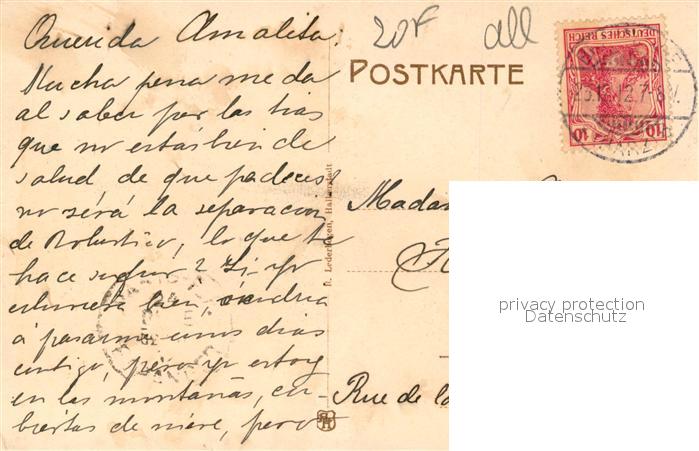 Querida Amalita:
Mucha pena me da
al saber por las tias
que no estás bien de
salud, de que padeces
no será la separacion
de Robustico, lo que te
hace sufrir? Si yo
estuviera bien, vendria
á pasarme unos dias
contigo, pero yo estoy
en las montañas, cu-
biertas de nieve, pero
20F
all
POSTKARTE
DEUTSCHES REICH
10 10
R. Lederbogen, Halberstadt
Madam
Rue de la
privacy protection
Datenschutz